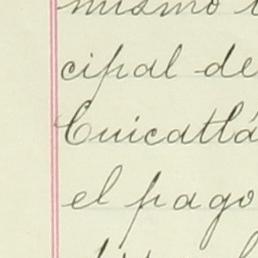 mismo
cipal de
Cuicatlá
el pago